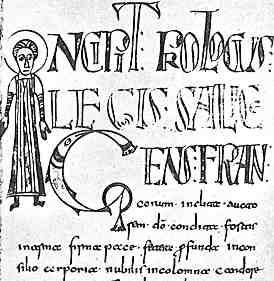 INCIPIT PROLOGUS
LEGIS SALICE
GENS FRAN
corum · inclita · aucto
rem · dō · condita · fortis
in arma firma pace profunda in con
silio corporea nobilis incolomna candore